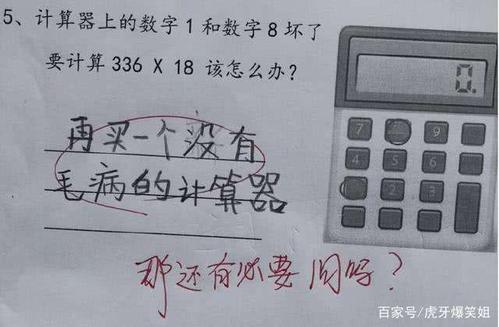 5、计算器上的数字1和数字8坏了
要计算336 X 18 该怎么办？
0.
7 9
4 5 6
2 3
再买一个没有
毛病的计算器
那还有必要问吗？
百家号/虎牙爆笑姐